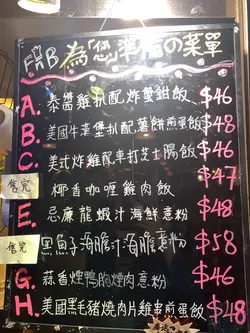 FHB 為「您」準備の菜單
A. 泰醬雞扒配炸蟹鉗飯 $46
B. 美國牛漢堡扒配薯餅煎蛋飯 $48
C. 美式炸雞配車打芝士腸飯 $46
售完 椰香咖喱雞肉飯 $47
E. 忌廉龍蝦汁海鮮意粉 $48
售完 黑魚子海膽汁海膽意粉 $58
G. 蒜香煙鴨胸煙肉意粉 $46
H. 美國黑毛豬燒肉片雞車煎蛋飯 $48